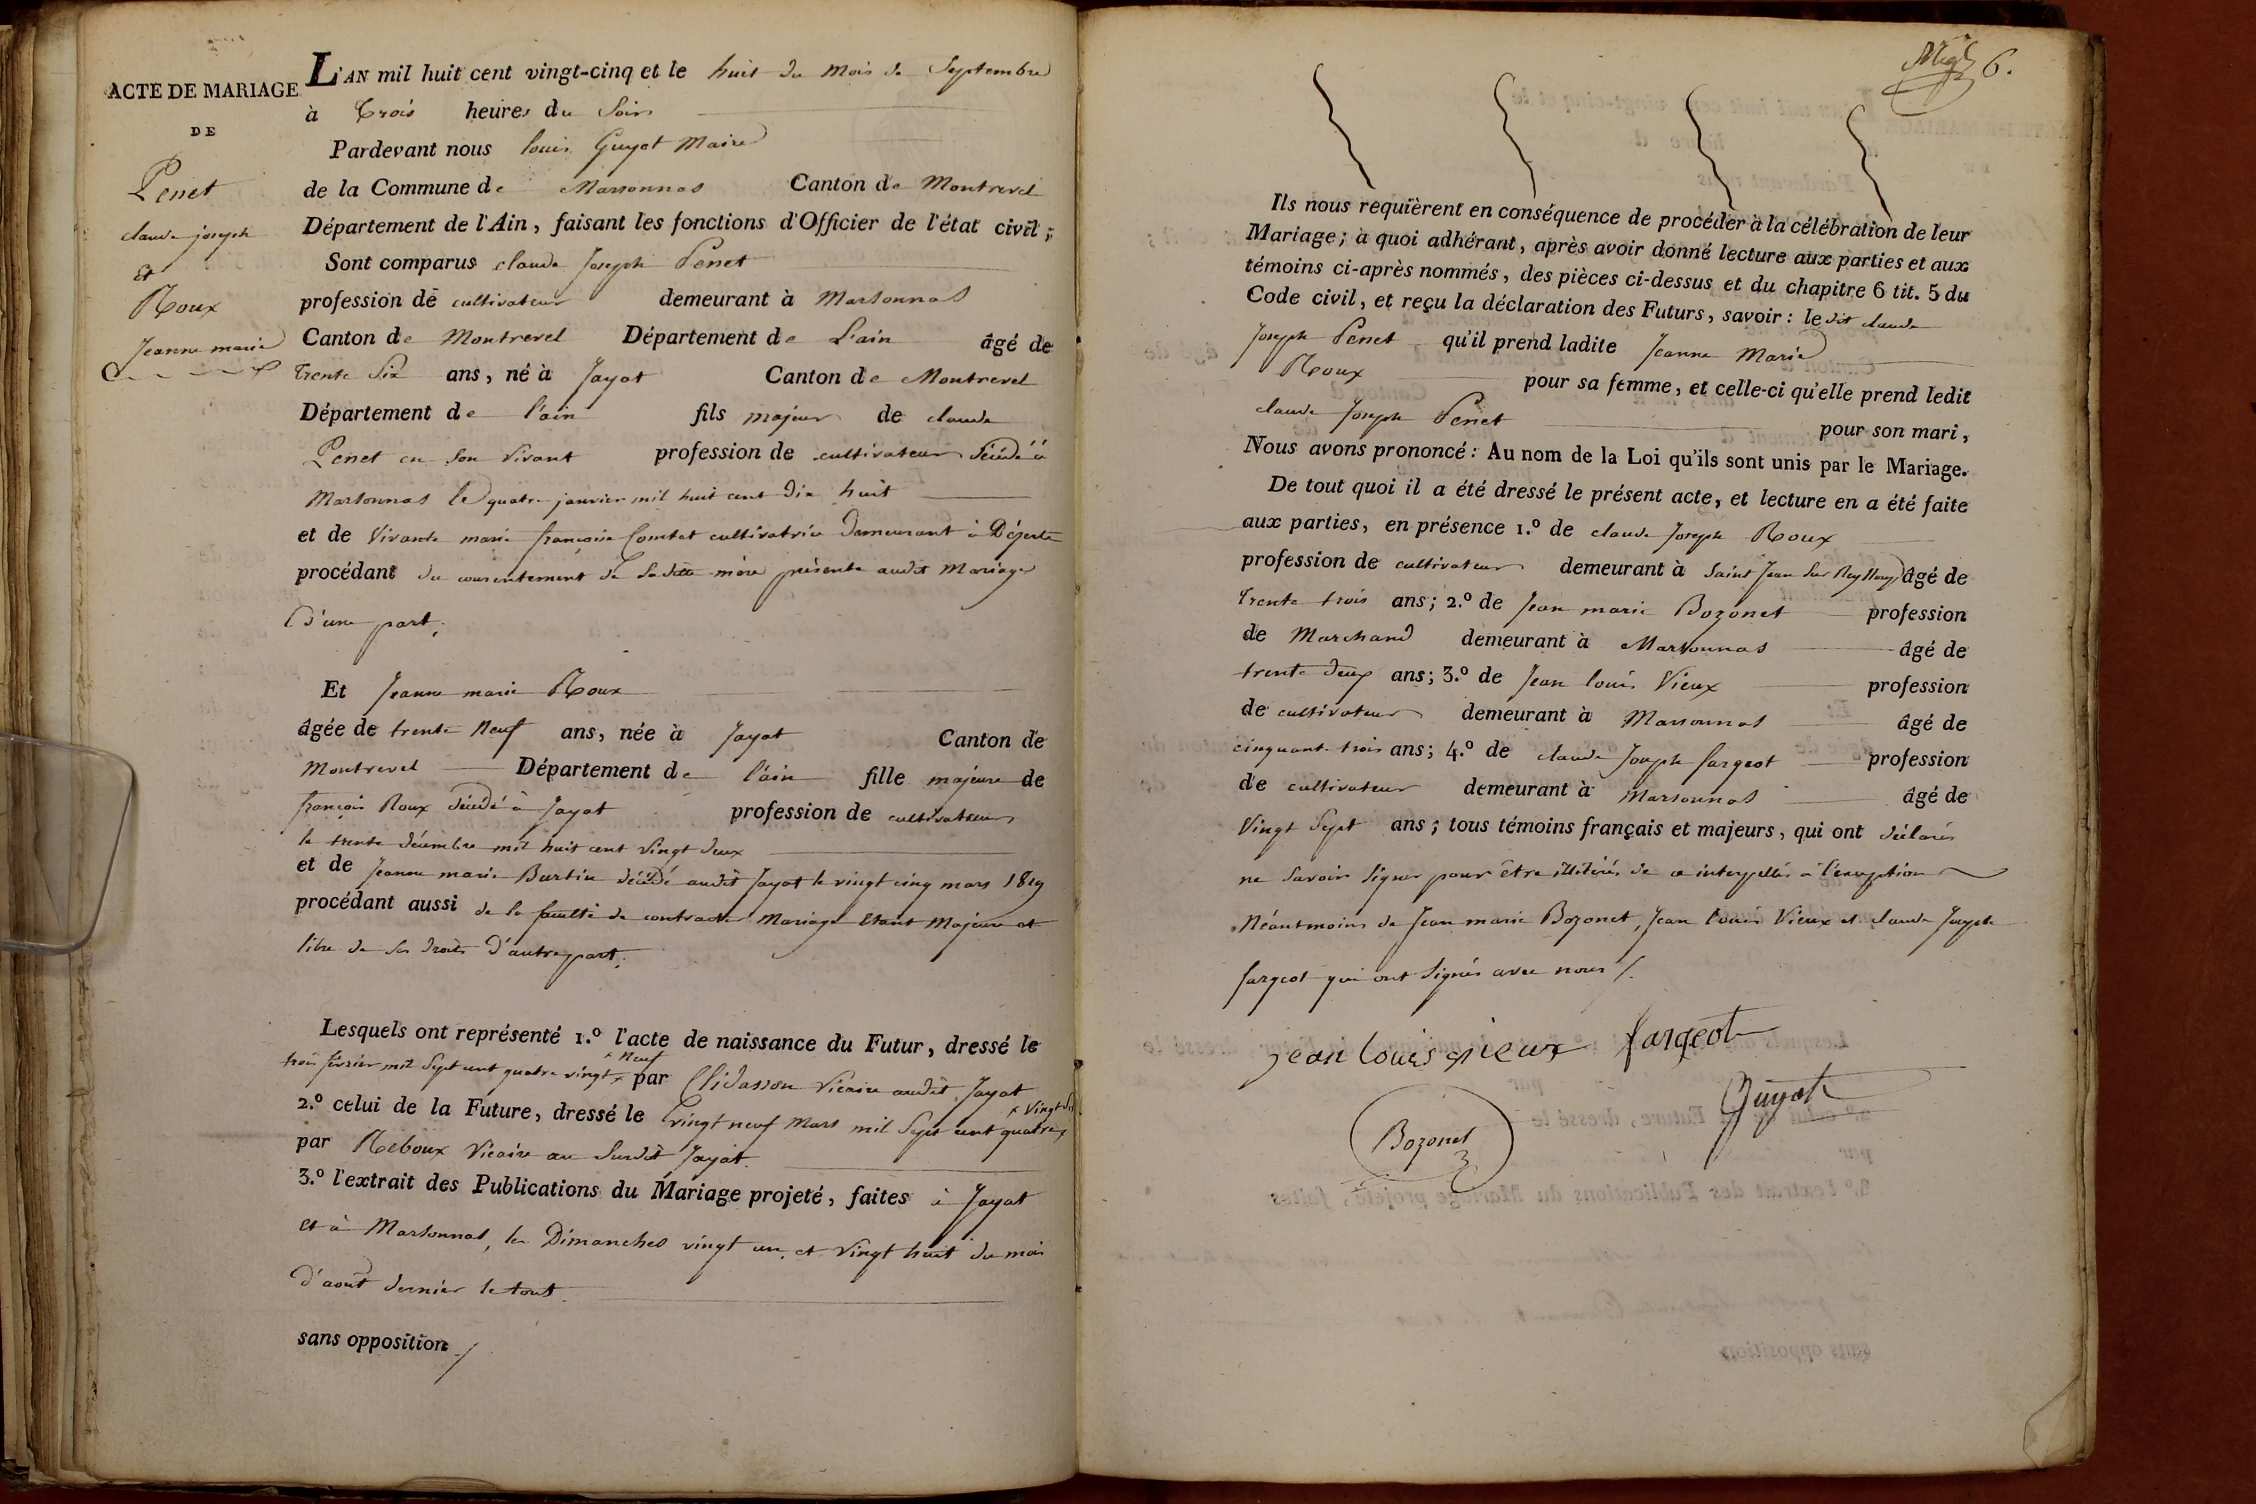 ACTE DE MARIAGE
DE
Penet
claude joseph
Et
Roux
Jeanne marie
L'AN mil huit cent vingt-cinq et le huit du mois de Septembre
à Trois heures du Soir
Pardevant nous louis Guyot Maire
de la Commune de Marsonnas Canton de Montrevel
Département de l'Ain, faisant les fonctions d'Officier de l'état civil;
Sont comparus claude Joseph Penet
profession de cultivateur demeurant à Marsonnas
Canton de Montrevel Département de L'ain âgé de
trente Six ans, né à Jayat Canton de Montrevel
Département de l'ain fils majeur de claude
Penet en Son Vivant profession de cultivateur décédé à
Marsonnas le quatre janvier mil huit cent dix huit
et de Vivante marie françoise Comtet cultivatrice demeurant à
procédant du consentement de Sadite mère présente audit Mariage
D'une part;
Et Jeanne marie Roux
âgée de trente Neuf ans, née à Jayat Canton de
Montrevel Département de l'ain fille majeure de
françois Roux décédé à Jayat profession de cultivateur
le trente décembre mil huit cent vingt deux
et de Jeanne marie Burtin décédé audit Jayat le vingt cinq mars 1819
procédant aussi de la faculté de contracter Mariage Etant Majeure et
libre de ses droits D'autre part;
Lesquels ont représenté 1.º l'acte de naissance du Futur, dressé le
x Neuf
trois février mil Sept cent quatre vingt x par Vicaire audit Jayat
2.º celui de la Future, dressé le vingt neuf Mars mil Sept cent quatre x
x Vingt Six
par Reboux Vicaire au Susdit Jayat.
3.º l'extrait des Publications du Mariage projeté, faites à Jayat
et à Marsonnas, les Dimanches vingt un et Vingt huit du mois
d'août dernier le tout
sans opposition ./
6.
Ils nous requièrent en conséquence de procéder à la célébration de leur
Mariage; à quoi adhérant, après avoir donné lecture aux parties et aux
témoins ci-après nommés, des pièces ci-dessus et du chapitre 6 tit. 5 du
Code civil, et reçu la déclaration des Futurs, savoir: le dit claude
Joseph Penet qu'il prend ladite Jeanne Marie
Roux pour sa femme, et celle-ci qu'elle prend ledit
claude Joseph Penet pour son mari,
Nous avons prononcé: Au nom de la Loi qu'ils sont unis par le Mariage.
De tout quoi il a été dressé le présent acte, et lecture en a été faite
aux parties, en présence 1.º de claude Joseph Roux
profession de cultivateur demeurant à Saint Jean Sur Reyssouze âgé de
trente trois ans; 2.º de Jean marie Bozonet profession
de Marchand demeurant à Marsonnas âgé de
trente deux ans; 3.º de Jean louis Vieux profession
de cultivateur demeurant à Marsonnas âgé de
cinquante trois ans; 4.º de claude Joseph fargeot profession
de cultivateur demeurant à Marsonnas âgé de
Vingt Sept ans; tous témoins français et majeurs, qui ont déclarés
ne Savoir Signer pour être illitérés de ce interpellés à l'exception
Néantmoins de Jean marie Bozonet, Jean louis Vieux et claude Joseph
fargeot qui ont Signés avec nous /.
jean louis vieux fargeot
Bozonet Guyot